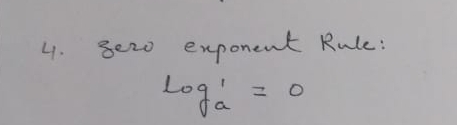 4. zero exponent Rule:
Log¹ₐ = 0